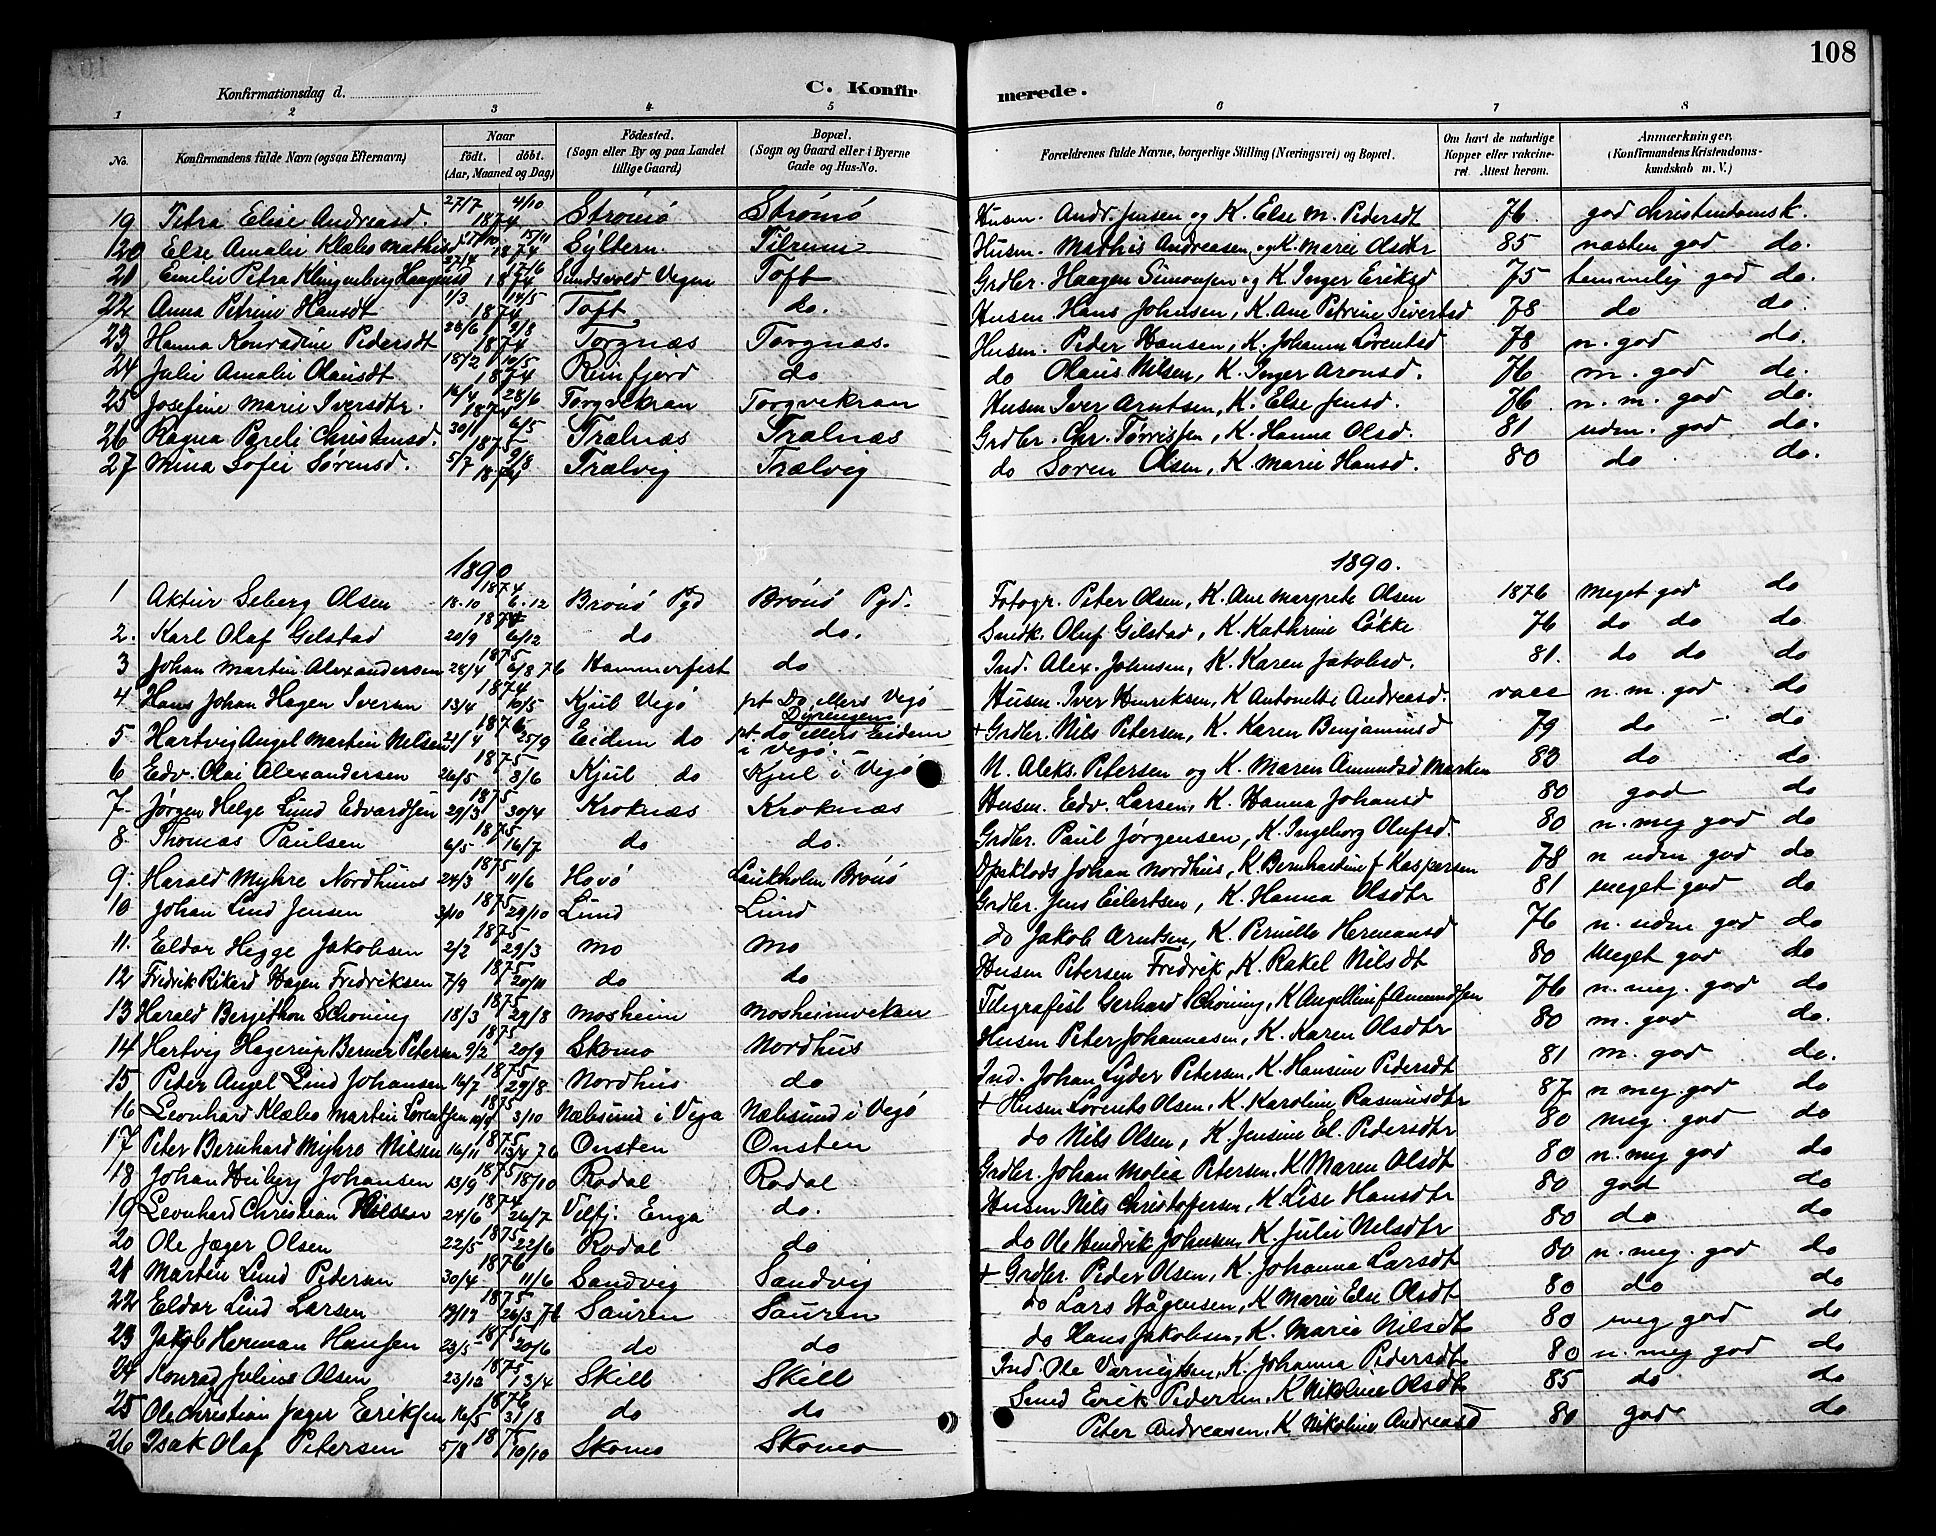 108
Konfirmationsdag d.
C. Konfirmerede.
1 2 3 4 5 6 7 8
No. Konfirmandens fulde Navn (ogsaa Efternavn) Naar født. døbt. (Aar, Maaned og Dag) Fødested. (Sogn eller By og paa Landet tillige Gaard) Bopæl. (Sogn og Gaard eller i Byerne Gade og Hus-No. Forældrenes fulde Navne, borgerlige Stilling (Næringsvei) og Bopæl. Om havt de naturlige Kopper eller vakcineret. Attest herom. Anmærkninger, (Konfirmandens Kristendomskundskab m. V.)
19 Petra Elise Andreasd. 27/7 1874 4/10 Strømø Strømø Husm. Andr. Jensen og K. Else M. Pedersdt 76 god christendomsk.
120 Else Amalie Klæbo Mathisd 1874 15/11 Tilrem Husm. Mathis Andreasen og K. Marie Olsdtr 85 næsten god do.
21 Emilie Petra Klingenberg Haagensd 1874 Sundsvold Vegen Toft Grdbr. Haagen Simonsen og K. Inger Eriksd 75 temmelig god do.
22 Anna Petrine Hansdt 1/3 1874 14/5 Toft do. Husm Hans Johnsen, K. Ane Petrine Sivertsd 78 do do.
23 Hanna Konradine Pedersdt 28/6 1874 2/8 Torgnæs Torgnæs. Husm. Peder Hansen, K. Johanna Lorentsd 78 n. god do.
24 Julie Amalie Olausdt 18/2 1874 10/5 Remfjord do do Olaus Nilsen, K. Inger Aronsd. 76 m. god do.
25 Josefine Marie Iversdtr. 16/4 1874 28/6 Torgvekran Torgvekran Husm Iver Arntsen, K. Else Jensd. 76 n. m. god do.
26 Ragna Pareli Christensd. 30/1 1875 6/5 Trælnæs Trælnæs Grdbr. Chr. Tørrissen, K. Hanna Olsd. 81 udm. god do.
27 Mina Sofie Sørensd. 5/7 1874 9/8 Trælvig Trælvig do Soren Olsen, K. Marie Hansd. 80 do do.
1890 1890.
1 Aktur Seberg Olsen 18.10 1874 6.12 Brønø Pgd Brønø Pgd. Fotogr. Peter Olsen, K. Ane Margrete Olsen 1876 meget god do
2. Karl Olaf Gilstad 20/9 1874 6/12 do do. Snedk. Oluf Gilstad, K. Kathrine Løkke 76 do do do
3 Johan Martin Alexandersen 28/4 1875 6/8 76 Hammerfest do Ind. Alex. Johnsen, K. Karen Jakobsd. 81. do do do
4 Hans Johan Hagen Iversen 13/4 1874 10/5 Kjul Vegø pt Do ellers Vegø Dyrengen Husm. Iver Henriksen, K Antonette Andreasd. vacc n. m. god do
5 Hartvig Angel Martin Nilsen 21/4 1876 25/9 Eidem do pt. do ellers Eidem i Vegø. + Grdbr. Nils Petersen, K. Karen Benjaminsd 79 do - do
6 Edv. Olai Alexandersen 26/5 1875 3/6 Kjul do Kjul i Vegø N. Aleks. Petersen og K. Maren Amundsd Marken 83 do do
7 Jørgen Helge Lund Edvardsen 29/3 1875 30/4 Kroknæs Kroknæs Husm. Edv. Larsen, K. Hanna Johansd 80 god do
8 Thomas Paulsen 6/5 1875 16/7 do do. Grdbr. Paul Jørgensen, K. Ingeborg Olufsd. 80 n. meg god do
9. Harald Myhre Nordhuus 24/3 1875 11/6 Havø Laukholm Brønø Johan Nordhus, K. Bernhardine f Kaspersen 78 n udm god do
10 Johan Lind Jensen 3/10 1875 29/10 Lund Lund Grdbr. Jens Eilertsen, K. Hanna Olsdtr 81 meget god do
11. Eldar Hegge Jakobsen 2/2 1875 29/3 Mo Mo do Jakob Arntsen, K. Pernille Hermansd 76 n. udm god do
12 Fredrik Rikard Hagen Fredriksen 7/9 1875 20/11 do do Husm Petersen Fredrik, K. Rakel Nilsdt 80 Meget god do
13 Harald Bergithon Schøning 18/3 1875 29/8 Mosheim Mosheimvekan Telegrafist Gerhard Schøning, K Angelline f Amundsen 76 n. meg. god do
14 Hartvig Hagerup Berner Petersen 9/2 1875 20/9 Skomo Nordhus Husm Peter Johannesen, K. Karen Olsdtr 80 m. god do.
15 Peder Angel Lund Johansen 16/7 1875 29/8 Nordhus do Ind. Johan Lyder Petersen, K. Hansine Pedersdt 81 m. god do.
16 Leonhard Klæbo Martin Lorentsen 1875 3/10 Næbsund i Vega Næbsund i Vegø + Husm Lorents Olsen, K. Karoline Rasmusdtr 87 n meg. god do
17 Peter Bernhard Myhre Nilsen 16/11 1875 13/4 76 Onsten Onsten do Nils Olsen, K. Jensine El. Pedersdtr 80 meg. god do
18 Johan Heiberg Johansen 13/9 1875 18/10 Rodal Rodal Grdbr. Johan Molia Petersen, K Maren Olsdt 80 n. meg god do
19 Leonhard Christian Nilsen 24/6 1874 26/7 Velfj. Enga do. Husm Nils Christofersen, K Lise Hansdtr 80 god do
20 Ole Jæger Olsen 22/5 1875 22/6 Rodal do do Ole Hendrik Johnsen, K. Julie Nilsdtr 80 do do
21 Martin Lund Pedersen 30/4 1876 11/6 Sandvig Sandvig + Grdbr. Peder Olsen, K. Johanna Larsdt 80 n. meg. god do
22 Eldar Lind Larsen 19/12 1875 26/3 76 Sauren Sauren do Lars Hågensen, K Marie Else Olsdt 80 do do
23 Jakob Herman Hansen 23/5 1875 20/6 do do do Hans Jakobsen, K. Marie Nilsdt 80 meg god do
24 Konrad Julius Olsen 23/12 1875 13/4 Skill Skill Ind. Ole K. Johanna Pedersdt 80 n. meg god do
25 Ole Christian Jæger Eriksen 16/5 1876 31/8 do do Smed Erik Pedersen, K Nikoline Olsdt 85 do do
26 Isak Olaf Petersen 5/8 1875 10/10 Skomo Skomo Peter Andreasen, K Nikoline Andreasd 80 god do